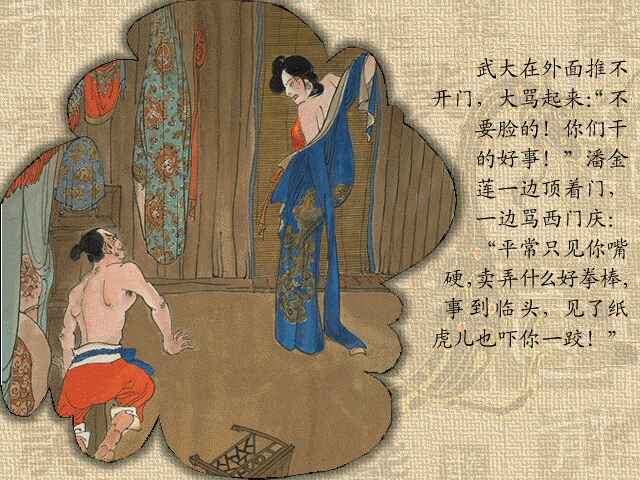 武大在外面推不
开门，大骂起来:“不
要脸的！你们干
的好事！”潘金
莲一边顶着门，
一边骂西门庆：
“平常只见你嘴
硬,卖弄什么好拳棒,
事到临头，见了纸
虎儿也吓你一跤！”